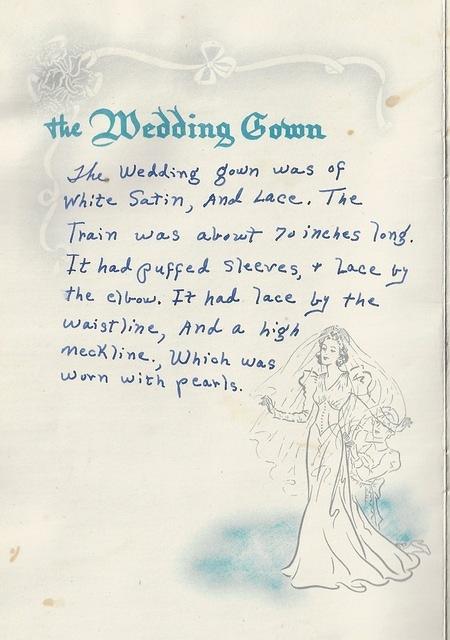 the Wedding Gown
The Wedding gown was of
White Satin, And Lace. The
Train was about 70 inches long.
It had puffed sleeves, + Lace by
the elbow. It had lace by the
waistline, And a high
neckline., Which was
worn with pearls.